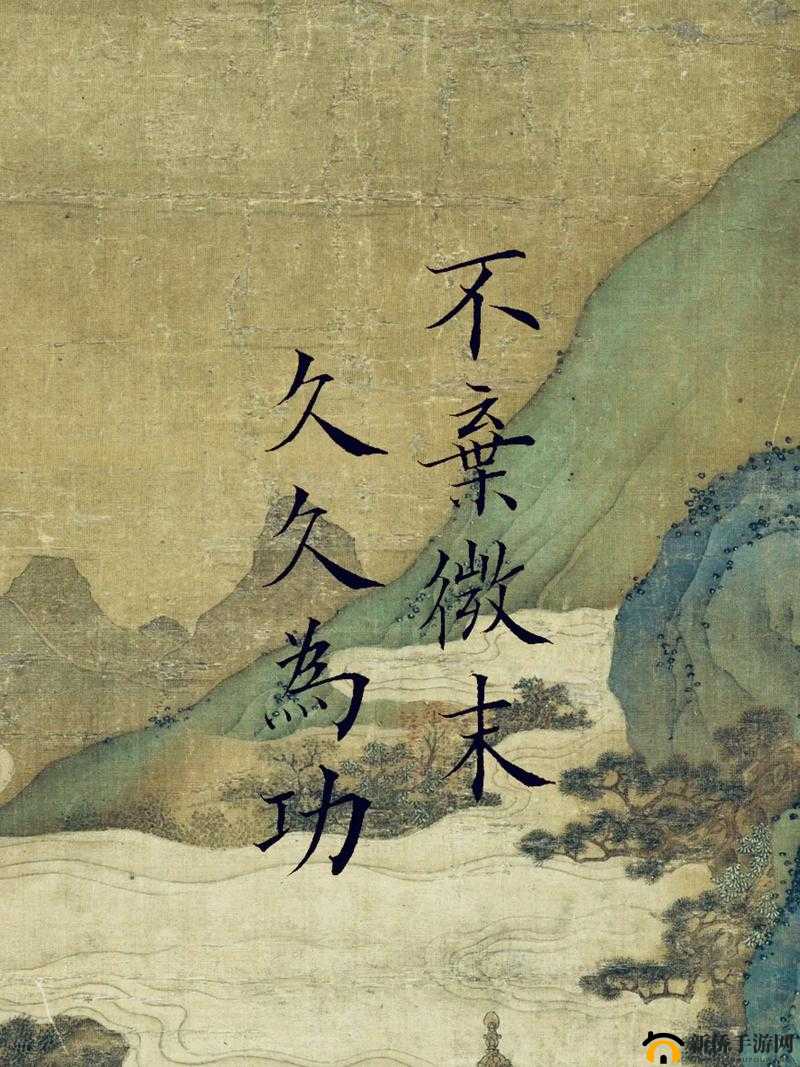 不棄微末
久久為功
新侨手游网